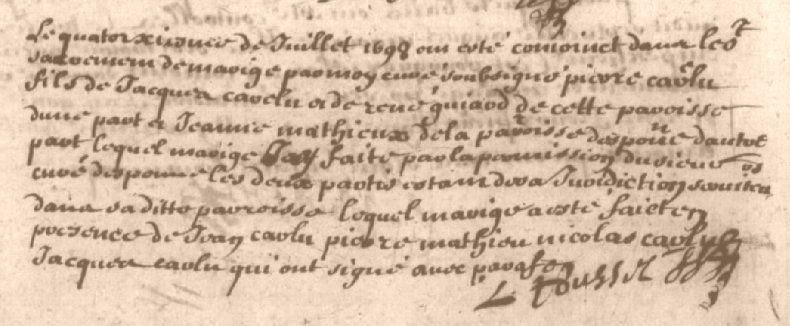 Le quatorziesme de Juillet 1698 ont esté conioinct dans le St
sacrement de mariage par moy curé soubsigné pierre carlu
fils de Jacques carlu et de rené quiard de cette paroisse
dune part et Jeanne mathieux de la paroisse despone dautre
part lequel mariage Jay faite par la permission du sieur
curé despone les deux partis estant de sa Juridiction
dans saditte parroisse lequel mariage a esté faict en
presence de Jean carlu pierre mathieu nicolas carlu
Jacques carlu qui ont signé avec parafe